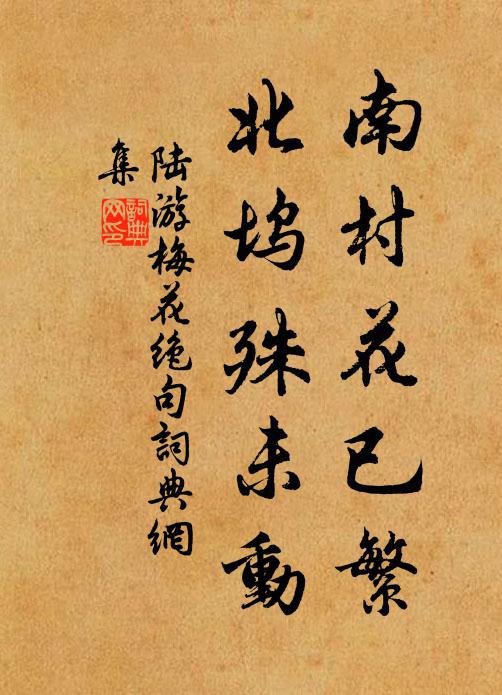 南村花已繁
北坞殊未動
陆游梅花绝句詞典網
集
詞典网印